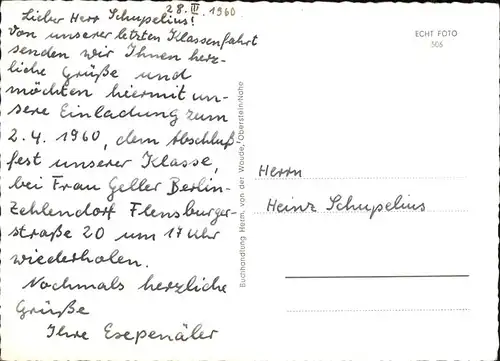 28. II. 1960
Lieber Herr Schupelius!
Von unserer letzten Klassenfahrt
senden wir Ihnen herz-
liche Grüße und
möchten hiermit un-
sere Einladung zum
2. 4. 1960, dem Abschluß-
fest unserer Klasse,
bei Frau Geller Berlin-
Zehlendorf Flensburger-
straße 20 um 17 Uhr
wiederholen.
Nochmals herzliche
Grüße
Ihre Esepenäler
Buchhandlung Herm. van der Woude, Oberstein/Nahe
ECHT FOTO
505
Herrn
Heinz Schupelius